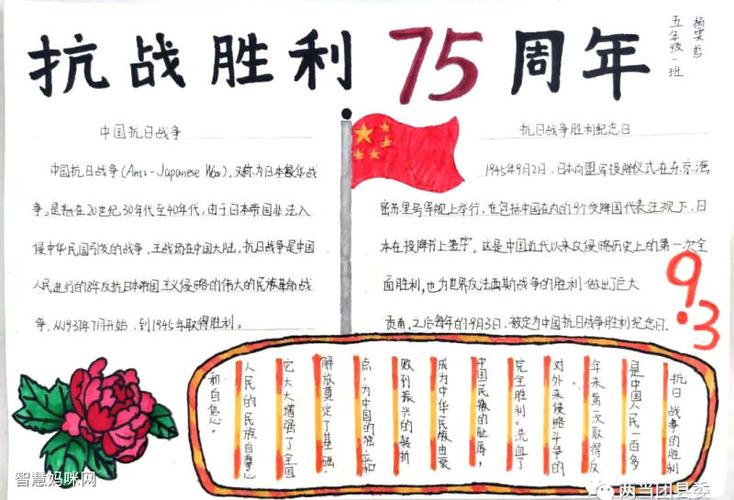 抗战胜利75周年
五年级一班
中国抗日战争
中国抗日战争(Anti-Japanese War),又称为日本侵华战
争。是指在20世纪30年代至40年代,由于日本帝国非法入
侵中华民国引发的战争,主战场在中国大陆。抗日战争是中国
人民进行的8年反抗日本帝国主义侵略的伟大的民族革命战
争,从1937年7月开始,到1945年取得胜利。
抗日战争胜利纪念日
1945年9月2日,日本向盟军投降仪式在东京湾
密苏里号军舰上举行,在包括中国在内的9个受降国代表注视下,日
本在投降书上签字。这是中国近代以来反侵略历史上的第一次全
面胜利,也为世界反法西斯战争的胜利做出了巨大
贡献。之后每年的9月3日,被定为中国抗日战争胜利纪念日。
9.3
抗日战争的胜利
是中国人民一百多
年来第一次取得反
对外来侵略斗争的
完全胜利。洗血了
中国民族的耻辱,
成为中华民族由衰
败到振兴的转折
点,为中国的独立和
解放奠定了基础。
它大大增强了全国
人民的民族自尊心
和自信心。
智慧妈咪网
两当团县委